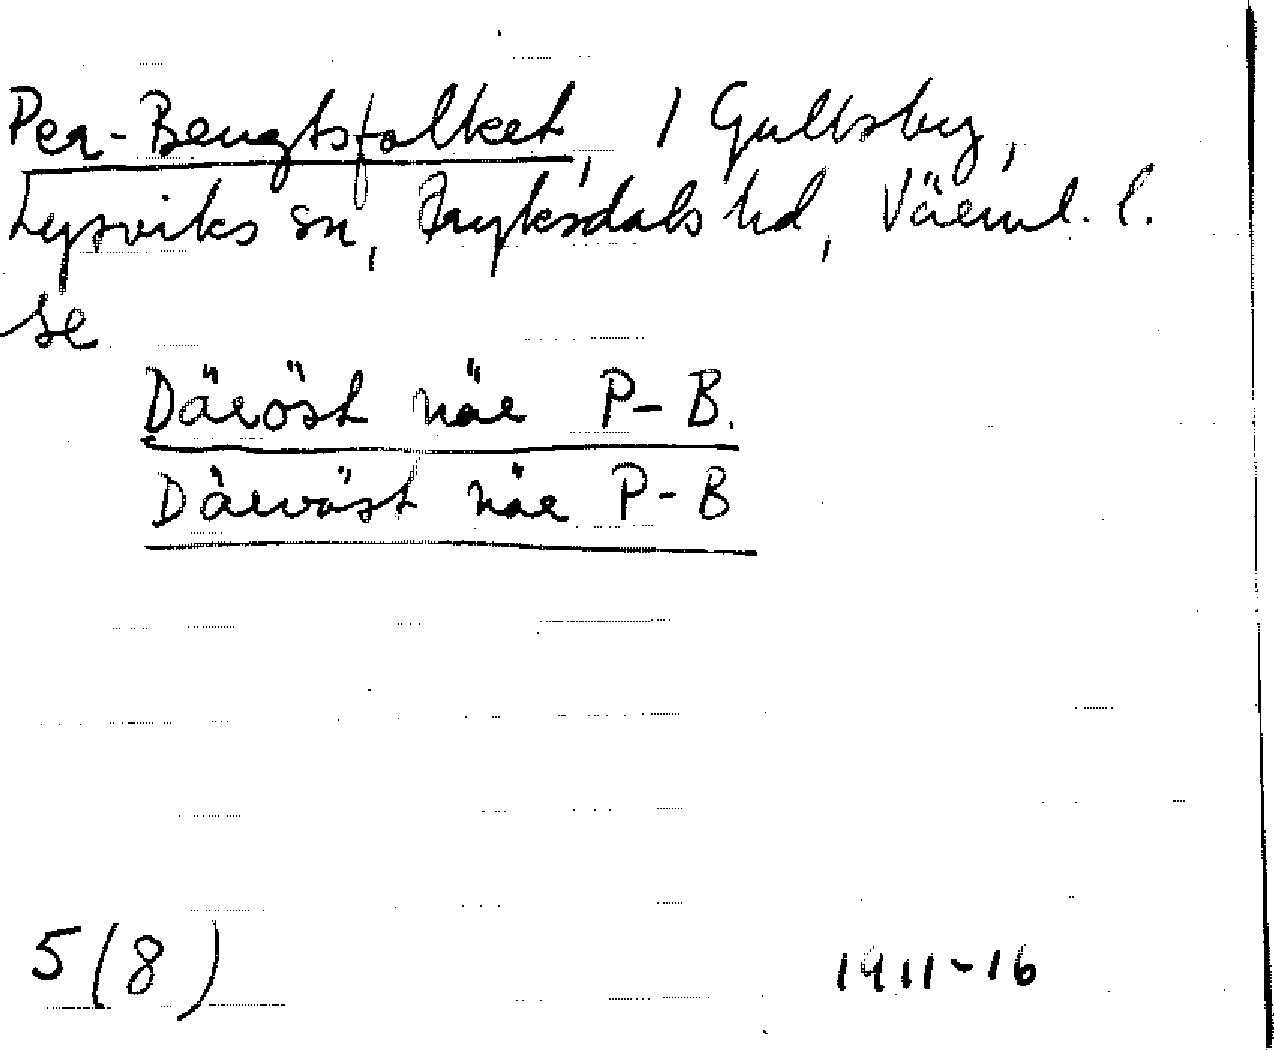 Per-Bengtsfolket, i Gullsby,
Lysviks sn, Fryksdals hd, Värml. l.
se
Däröst när P-B.
Därväst när P-B
5 (8)
1911-16